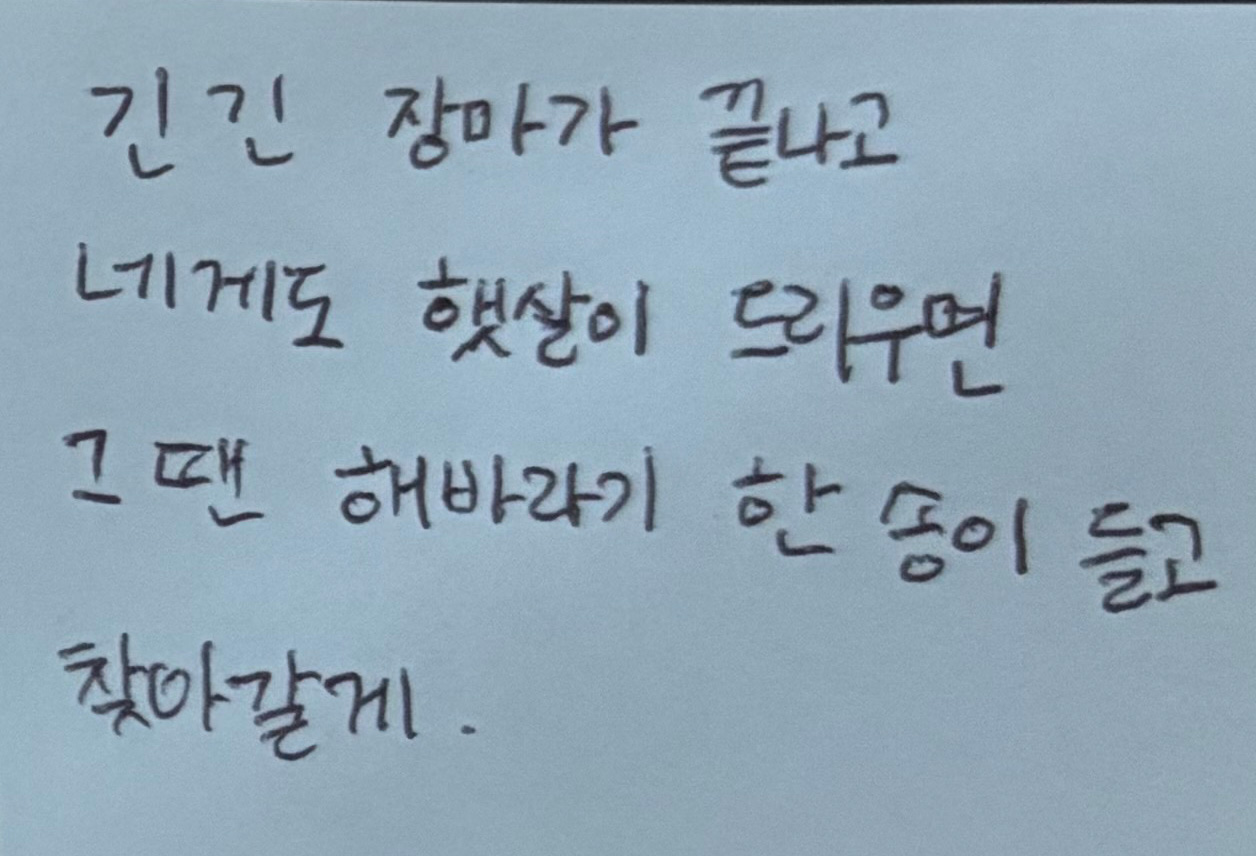 긴긴 장마가 끝나고
네게도 햇살이 드리우면
그땐 해바라기 한 송이 들고
찾아갈게.